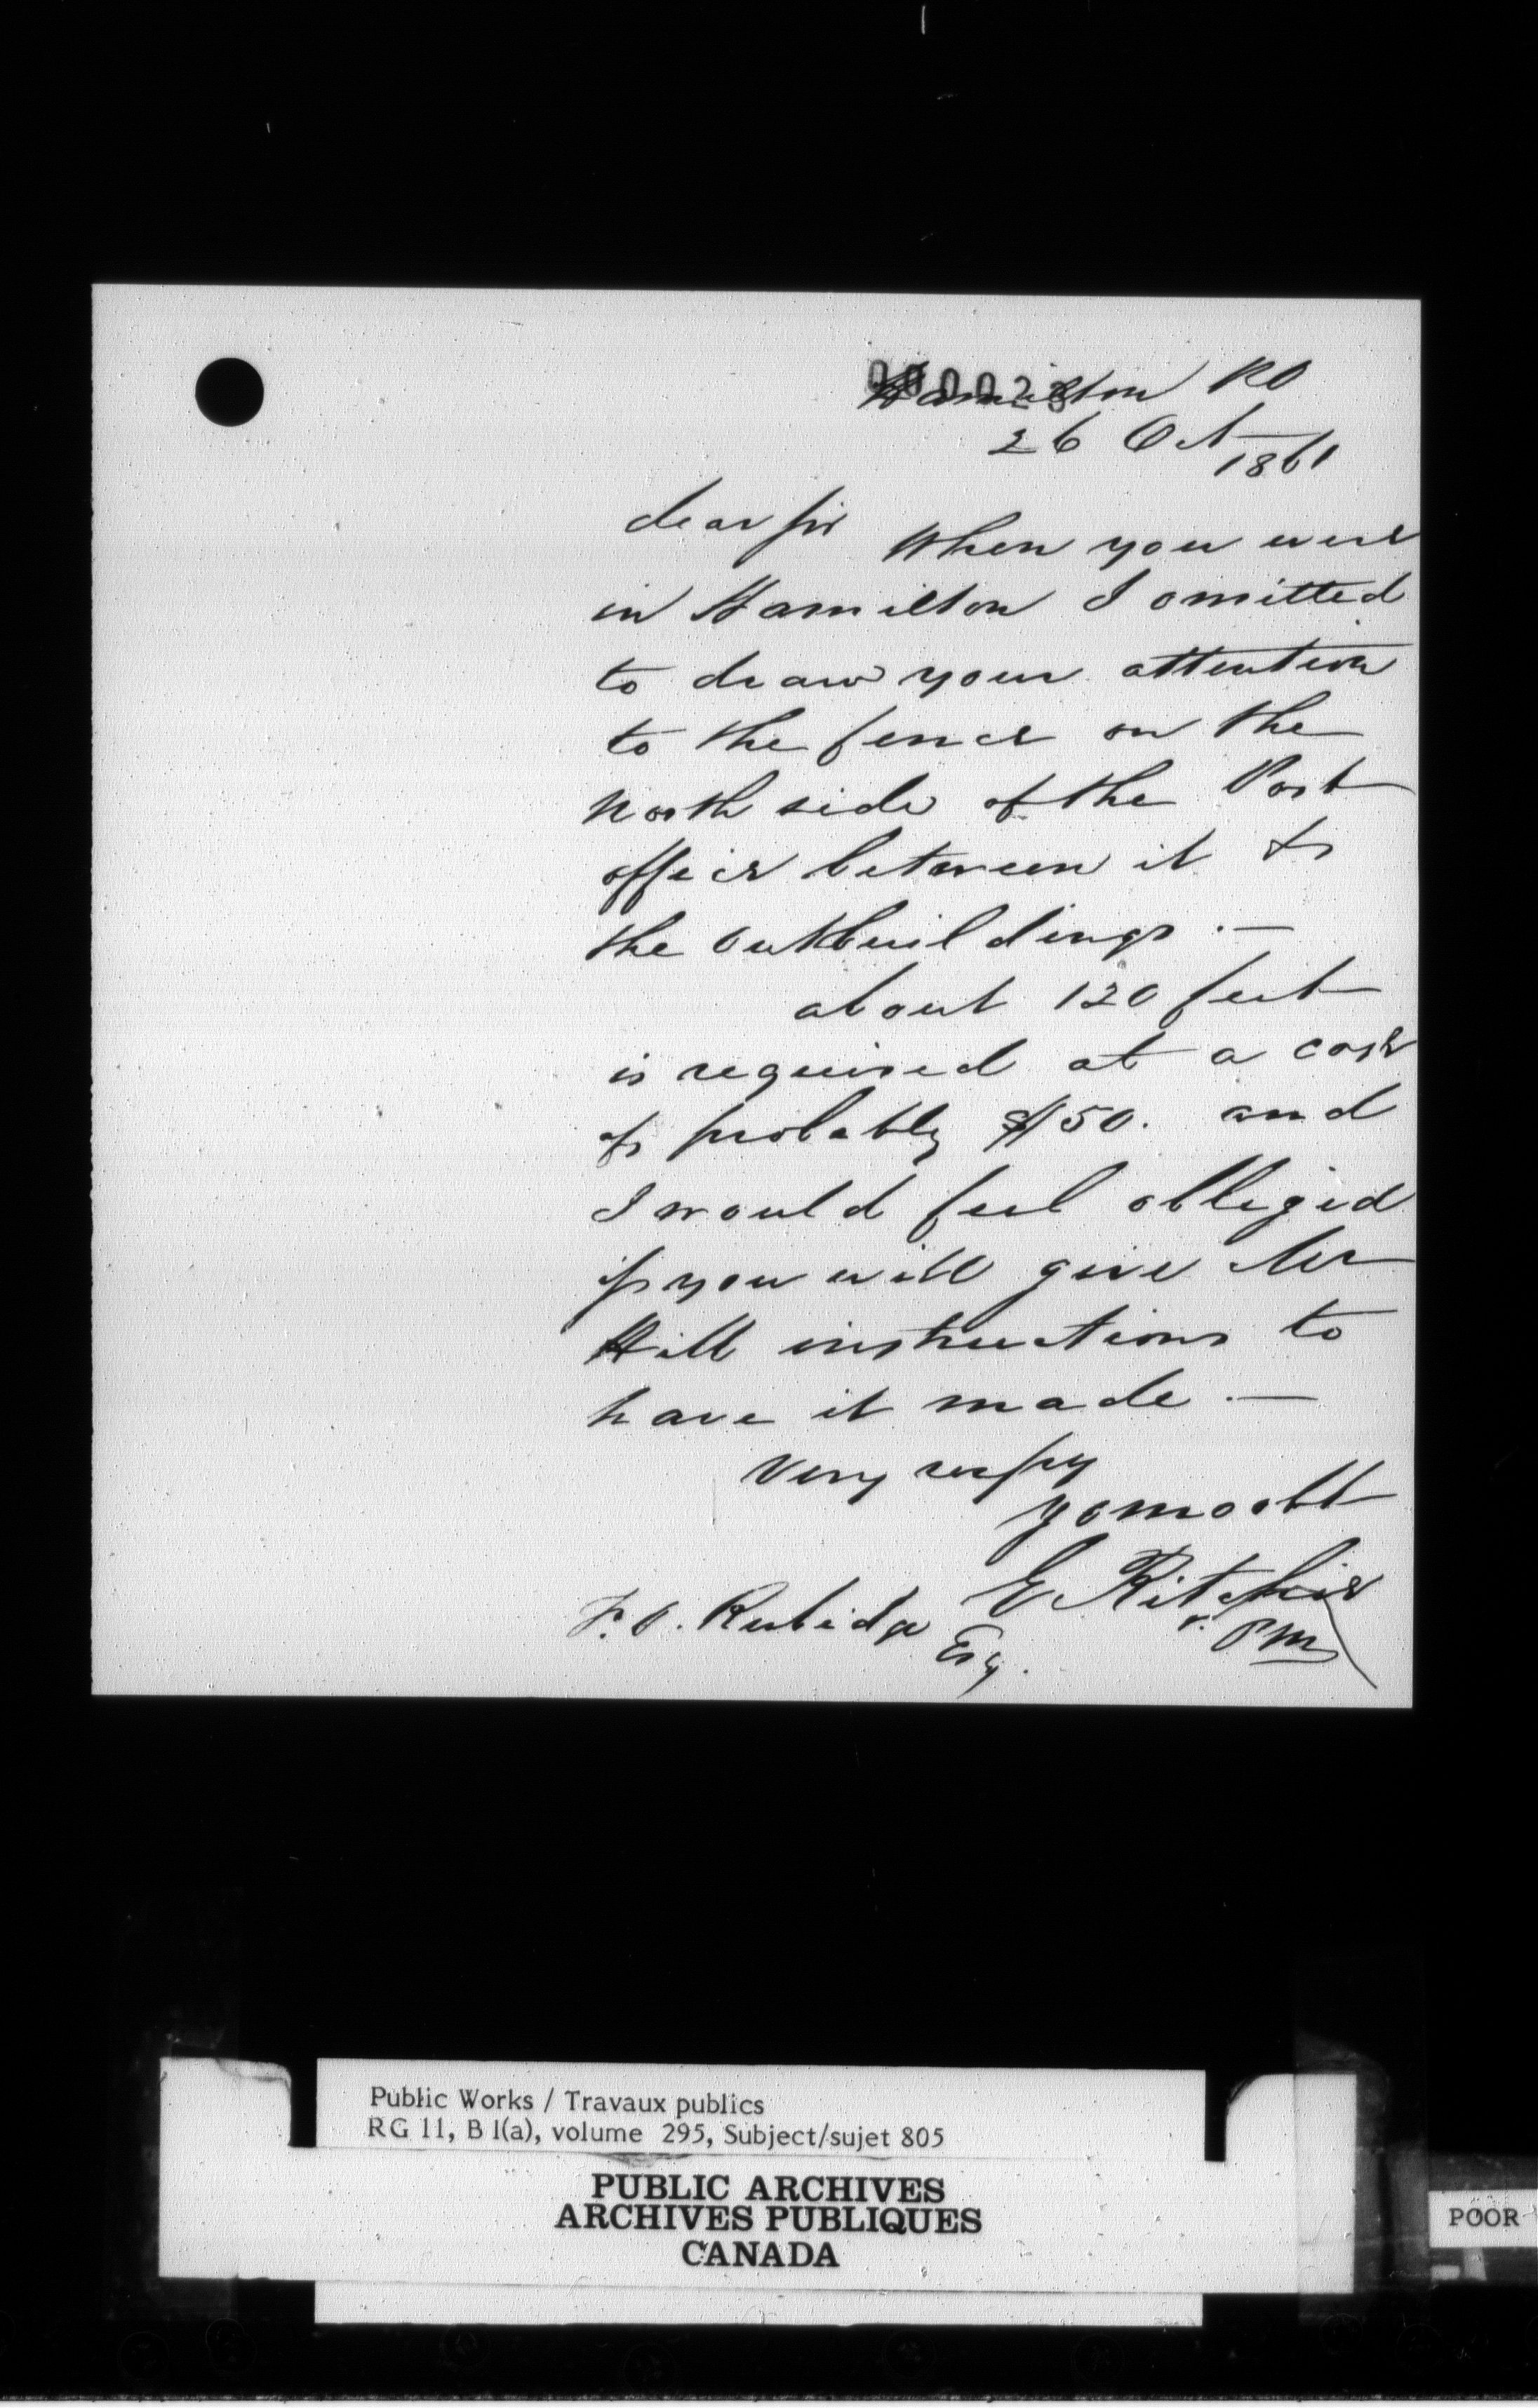 000023
Hamilton PO
26 Oct
1861
dear Sir
When you were
in Hamilton I omitted
to draw your attention
to the fence on the
North side of the Post
office between it &
the Outbuildings . —
about 120 feet
is required at a cost
of probably $50. and
I would feel obliged
if you will give Mr
Hill instructions to
have it made . —
Very respy
yo mo obt
E Ritchie
PM
F. P. Rubidge
Esq.
Public Works / Travaux publics
RG 11, B 1(a), volume 295, Subject/sujet 805
PUBLIC ARCHIVES
ARCHIVES PUBLIQUES
CANADA
POOR